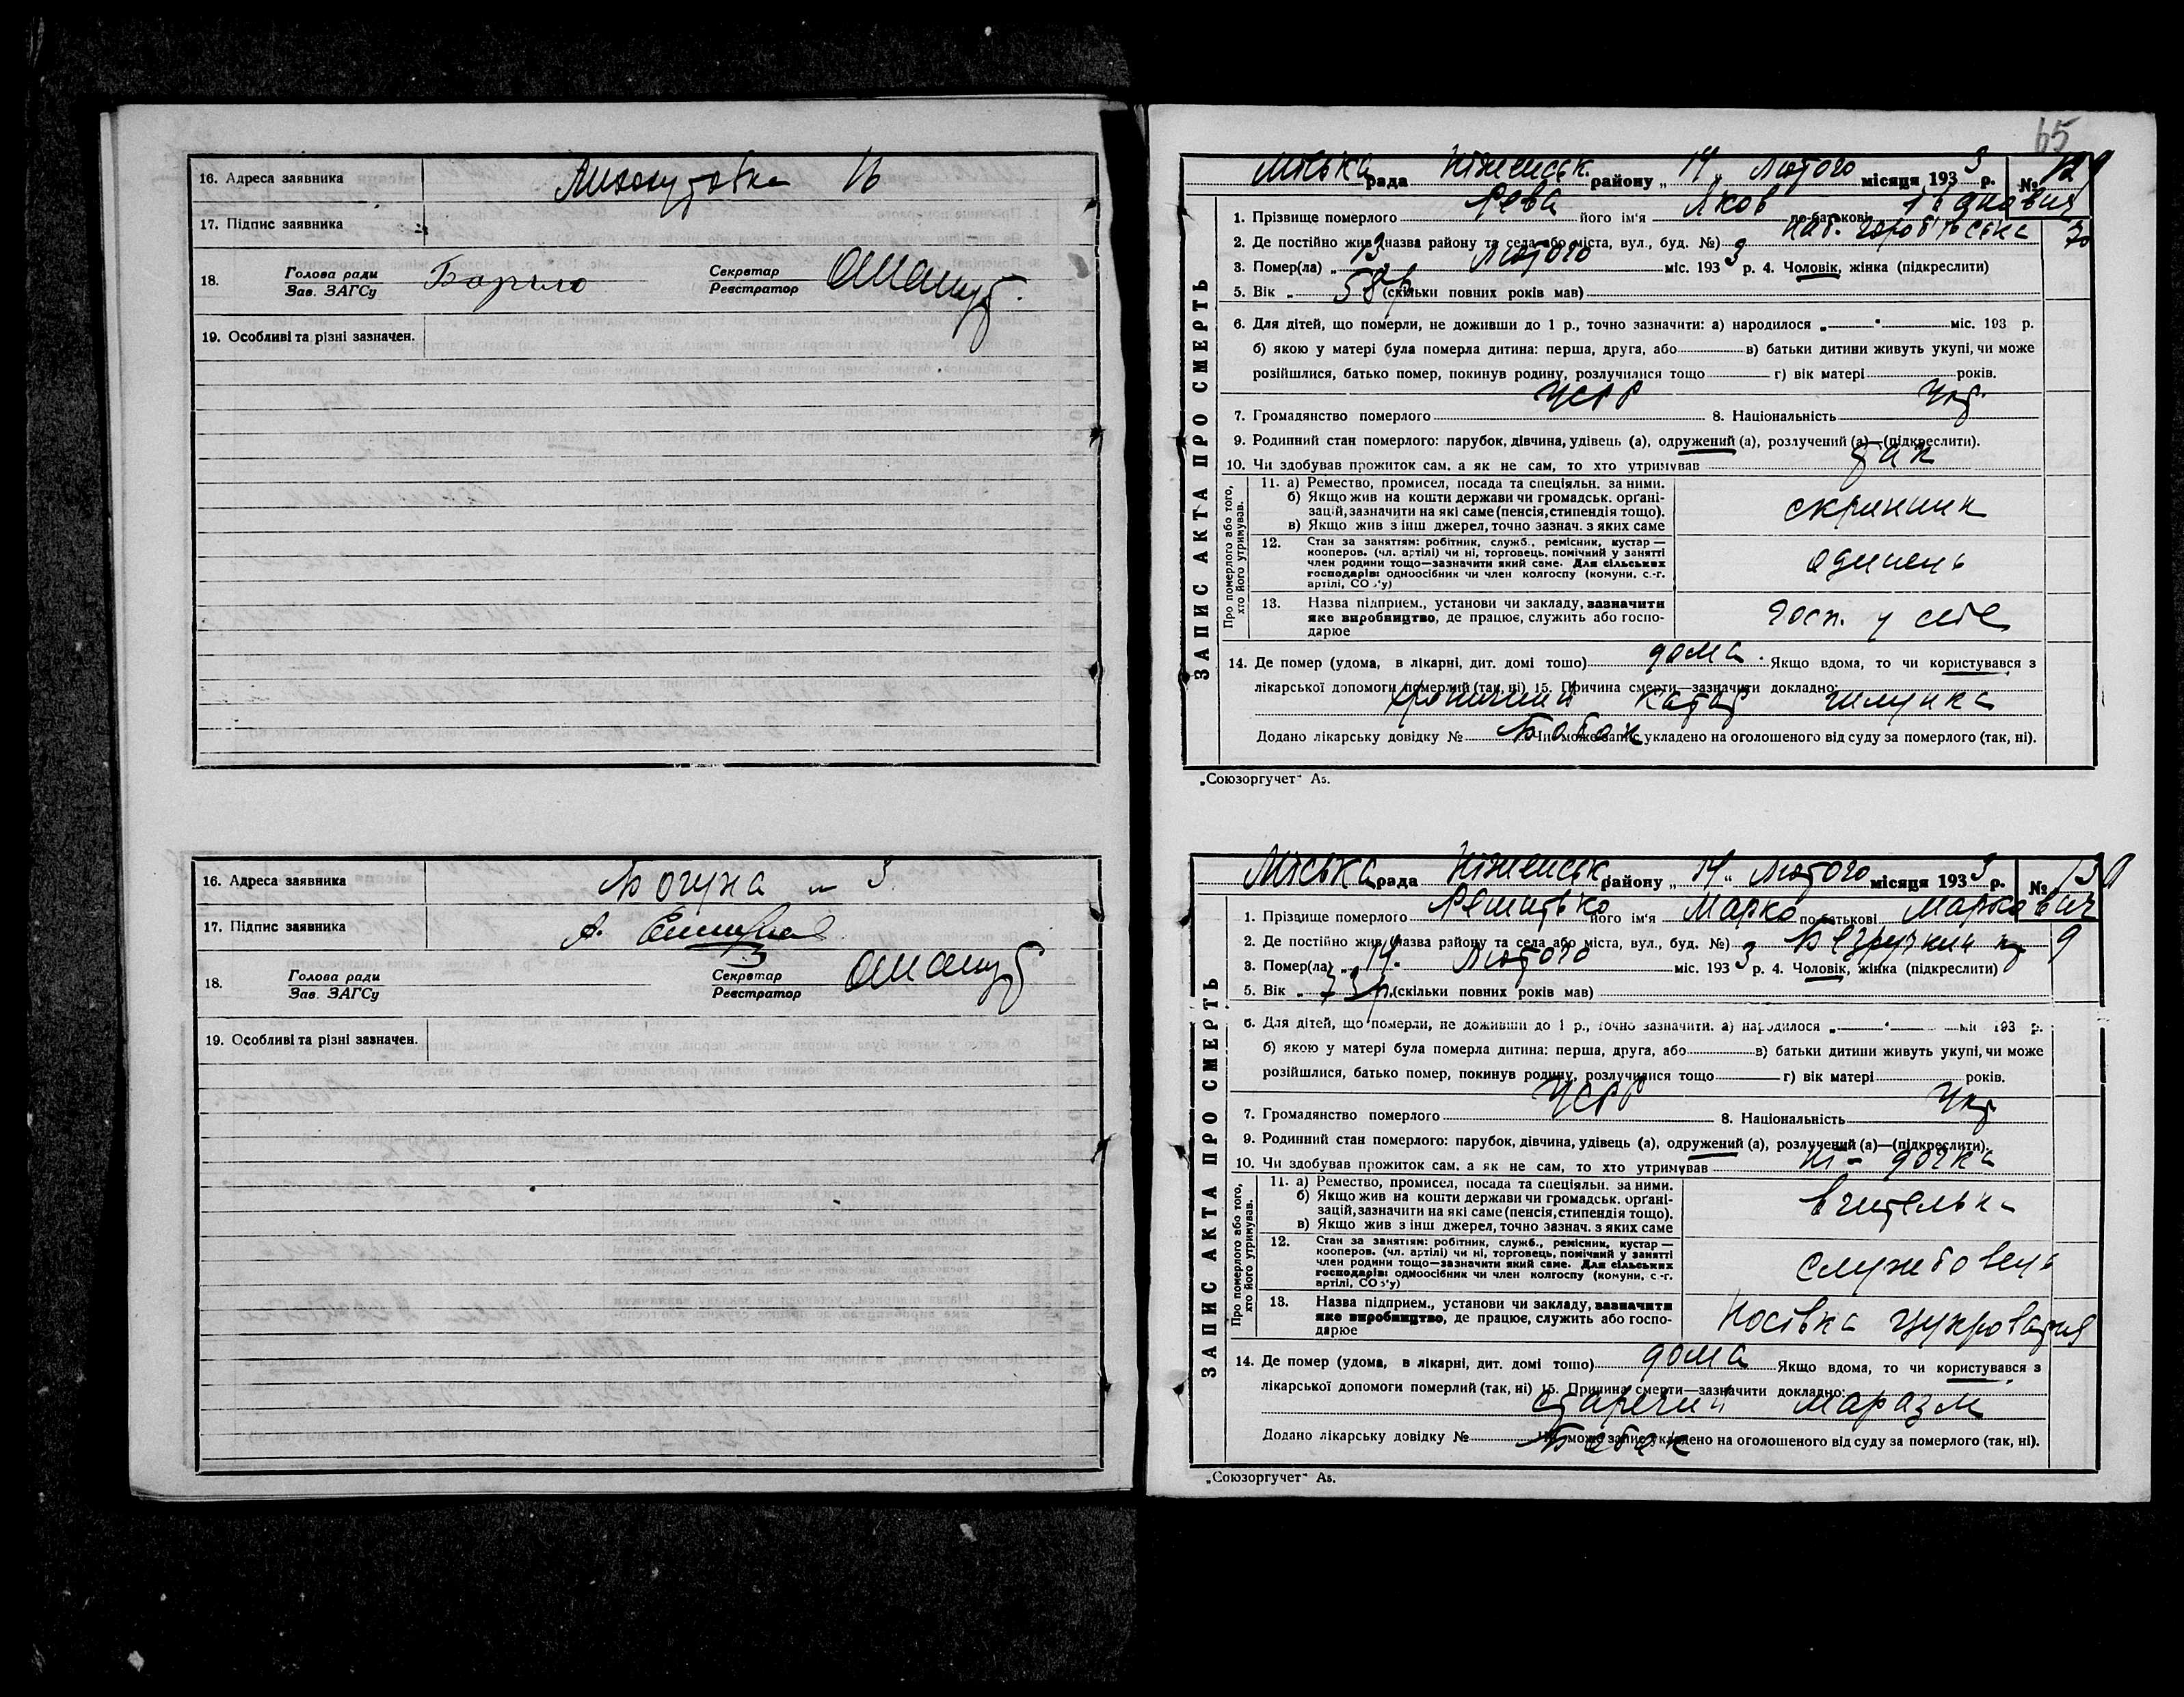 16. Адреса заявника
17. Підпис заявника
18. Голова ради
Зав. ЗАГСу
Секретар
Реєстратор
19. Особливі та різні зазначен.
16. Адреса заявника Богуна 3
17. Підпис заявника А.
18. Голова ради
Зав. ЗАГСу
Секретар
Реєстратор
19. Особливі та різні зазначен.
65
ЗАПИС АКТА ПРО СМЕРТЬ
Міська рада Ніженськ. району „14 Лютого місяця 1933 р. № 129
1. Прізвище померлого Рева його ім'я Яков по батькові Іванович
2. Де постійно жив (назва району та села або міста, вул., буд. №) 70
3. Помер(ла) „13 Лютого міс. 1933 р. 4. Чоловік, жінка (підкреслити)
5. Вік „ 58 р. (скільки повних років мав)
6. Для дітей, що померли, не доживши до 1 р., точно зазначити: а) народилося „ " міс. 193 р.
б) якою у матері була померла дитина: перша, друга, або в) батьки дитини живуть укупі, чи може
розійшлися, батько помер, покинув родину, розлучилися тощо г) вік матері років.
7. Громадянство померлого УСРР 8. Національність Укр.
9. Родинний стан померлого: парубок, дівчина, удівець (а), одружений (а), розлучений (а)—(підкреслити).
10. Чи здобував прожиток сам, а як не сам, то хто утримував так
Про померлого або того, хто його утримував.
11. а) Ремество, промисел, посада та спеціяльн. за ними.
б) Якщо жив на кошти держави чи громадськ. органі-
зацій, зазначити на які саме (пенсія, стипендія тощо).
в) Якщо жив з інш джерел, точно зазнач. з яких саме
12. Стан за заняттям: робітник, служб., ремісник, кустар —
кооперов. (чл. артілі) чи ні, торговець, помічний у занятті
член родини тощо—зазначити який саме. Для сільських
господарів: одноосібник чи член колгоспу (комуни, с.-г.
артілі, СОЗ'у)
одинець
13. Назва підприєм., установи чи закладу, зазначити
яке виробництво, де працює, служить або госпо-
дарює
госп. у себе
14. Де помер (удома, в лікарні, дит. домі тощо) дома. Якщо вдома, то чи користувався з
лікарської допомоги померлий (так, ні) 15. Причина смерти—зазначити докладно:
хронічний катар шлунка
Додано лікарську довідку № Бобок Чи може запис укладено на оголошеного від суду за померлого (так, ні).
„Союзоргучет" А5.
ЗАПИС АКТА ПРО СМЕРТЬ
Міська рада Ніженськ. району „14" Лютого місяця 1933 р. № 130
1. Прізвище померлого Решитько його ім'я Марко по батькові Маркович
2. Де постійно жив (назва району та села або міста, вул., буд. №) 9
3. Помер(ла) „14" Лютого міс. 1933 р. 4. Чоловік, жінка (підкреслити)
5. Вік „ 73 р. (скільки повних років мав)
6. Для дітей, що померли, не доживши до 1 р., точно зазначити: а) народилося „ " міс 193 р.
б) якою у матері була померла дитина: перша, друга, або в) батьки дитини живуть укупі, чи може
розійшлися, батько помер, покинув родину, розлучилися тощо г) вік матері років.
7. Громадянство померлого УСРР 8. Національність Укр
9. Родинний стан померлого: парубок, дівчина, удівець (а), одружений (а), розлучений (а)—(підкреслити).
10. Чи здобував прожиток сам, а як не сам, то хто утримував ні - дочка
Про померлого або того, хто його утримував.
11. а) Ремество, промисел, посада та спеціяльн. за ними.
б) Якщо жив на кошти держави чи громадськ. органі-
зацій, зазначити на які саме (пенсія, стипендія тощо).
в) Якщо жив з інш джерел, точно зазнач. з яких саме
вчителька
12. Стан за заняттям: робітник, служб., ремісник, кустар —
кооперов. (чл. артілі) чи ні, торговець, помічний у занятті
член родини тощо—зазначити який саме. Для сільських
господарів: одноосібник чи член колгоспу (комуни, с.-г.
артілі, СОЗ'у)
службовець
13. Назва підприєм., установи чи закладу, зазначити
яке виробництво, де працює, служить або госпо-
дарює
Носівка цукроварня
14. Де помер (удома, в лікарні, дит. домі тощо) дома Якщо вдома, то чи користувався з
лікарської допомоги померлий (так, ні) 15. Причина смерти—зазначити докладно:
старечий маразм
Додано лікарську довідку № Бобок Чи може запис укладено на оголошеного від суду за померлого (так, ні).
„Союзоргучет" А5.